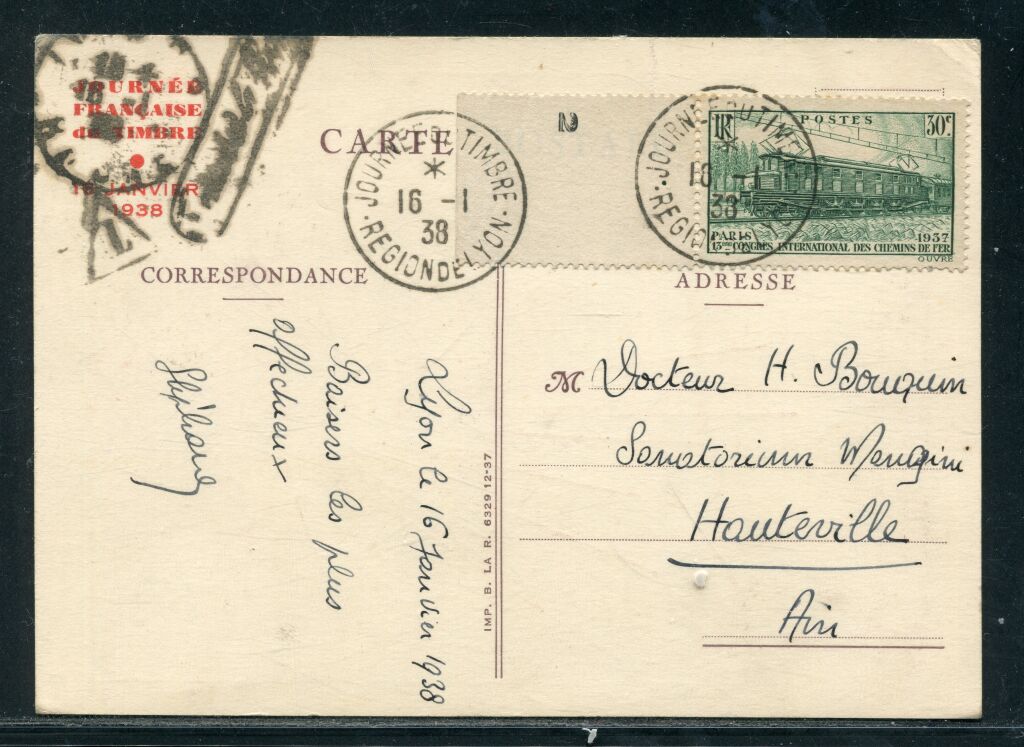 JOURNÉE
FRANÇAISE
du TIMBRE
16 JANVIER
1938
CARTE
JOURNEE DU TIMBRE
16 - 1
38
REGION DE LYON
2
JOURNEE DU TIMBRE
16 - 1
38
REGION DE LYON
RF
POSTES
30c
PARIS
1937
13me CONGRES INTERNATIONAL DES CHEMINS DE FER
OUVRÉ
CORRESPONDANCE
ADRESSE
Lyon le 16 Janvier 1938
Baisers les plus
affectueux
Stéphane
IMP. B. LA R. 6329 12-37
M Docteur H. Bouquin
Sanatorium Mangini
Hauteville
Ain